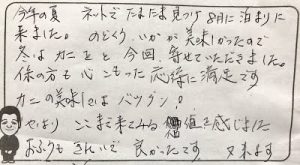 今年の夏 ネットで たまたま見つけ 8月に泊まりに
来ました。 のどぐろ いかが 美味しかったので
冬は カニをと 今回 寄せていただきました。
係の方も 心こもった 応待に 満足です
カニの美味しさは バツグン!
やはり ここまで来てみる 価値を感じました
おふろも きれいで 良かったです 又来ます